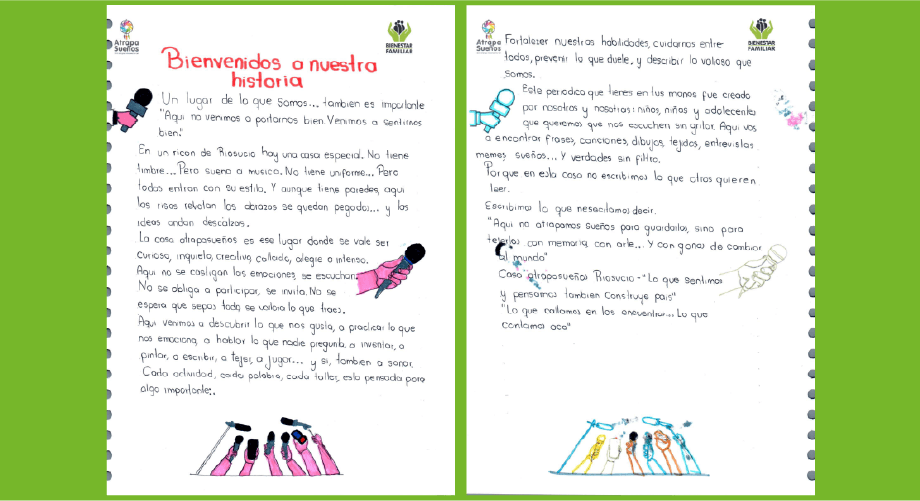 Atrapa
Sueños
BIENESTAR
FAMILIAR
Bienvenidos a nuestra
historia
Un lugar de lo que somos... tambien es importante
"Aqui no venimos a portarnos bien. Venimos a sentirnos
bien."
En un ricon de Riosucio hay una casa especial. No tiene
timbre... Pero suena a musica. No tiene uniforme... Pero
todos entran con su estilo. Y aunque tiene paredes, aqui
las risas rebotan los abrazos se quedan pegados... y las
ideas andan descalzas.
La casa atrapasueños es ese lugar donde se vale ser
curioso, inquieto, creativo, callado, alegre o intenso.
Aqui no se castigan las emociones, se escuchan.
No se obliga a participar, se invita. No se
espera que sepas todo se valora lo que traes.
Aqui venimos a descubrir lo que nos gusta, a practicar lo que
nos emociona, a hablar lo que nadie pregunta. a inventar, a
pintar, a escribir, a tejer, a jugar... y si, tambien a sanar.
Cada actividad, cada palabra, cada taller, esta pensada para
algo importante:.
Atrapa
Sueños
BIENESTAR
FAMILIAR
Fortalecer nuestras habilidades, cuidarnos entre
todos, prevenir lo que duele, y describir lo valioso que
somos.
Este periodico que tienes en tus manos fue creado
por nosotros y nosotras: niños, niñas y adolecentes
que queremos que nos escuchen sin gritar. Aqui vas
a encontrar frases, canciones, dibujos, tejidos, entrevistas
memes, sueños... Y verdades sin filtro.
Porque en esta casa no escribimos lo que otros quieren
leer.
Escribimos lo que nesecitamos decir.
"Aqui no atrapamos sueños para guardarlos, sino para
tejerlos con memoria, con arte... Y con ganas de cambiar
al mundo"
Casa "atrapasueños" Riosucio - "Lo que sentimos
y pensamos tambien construye pais"
"Lo que callamos en los encuentros... Lo que
contamos aca"